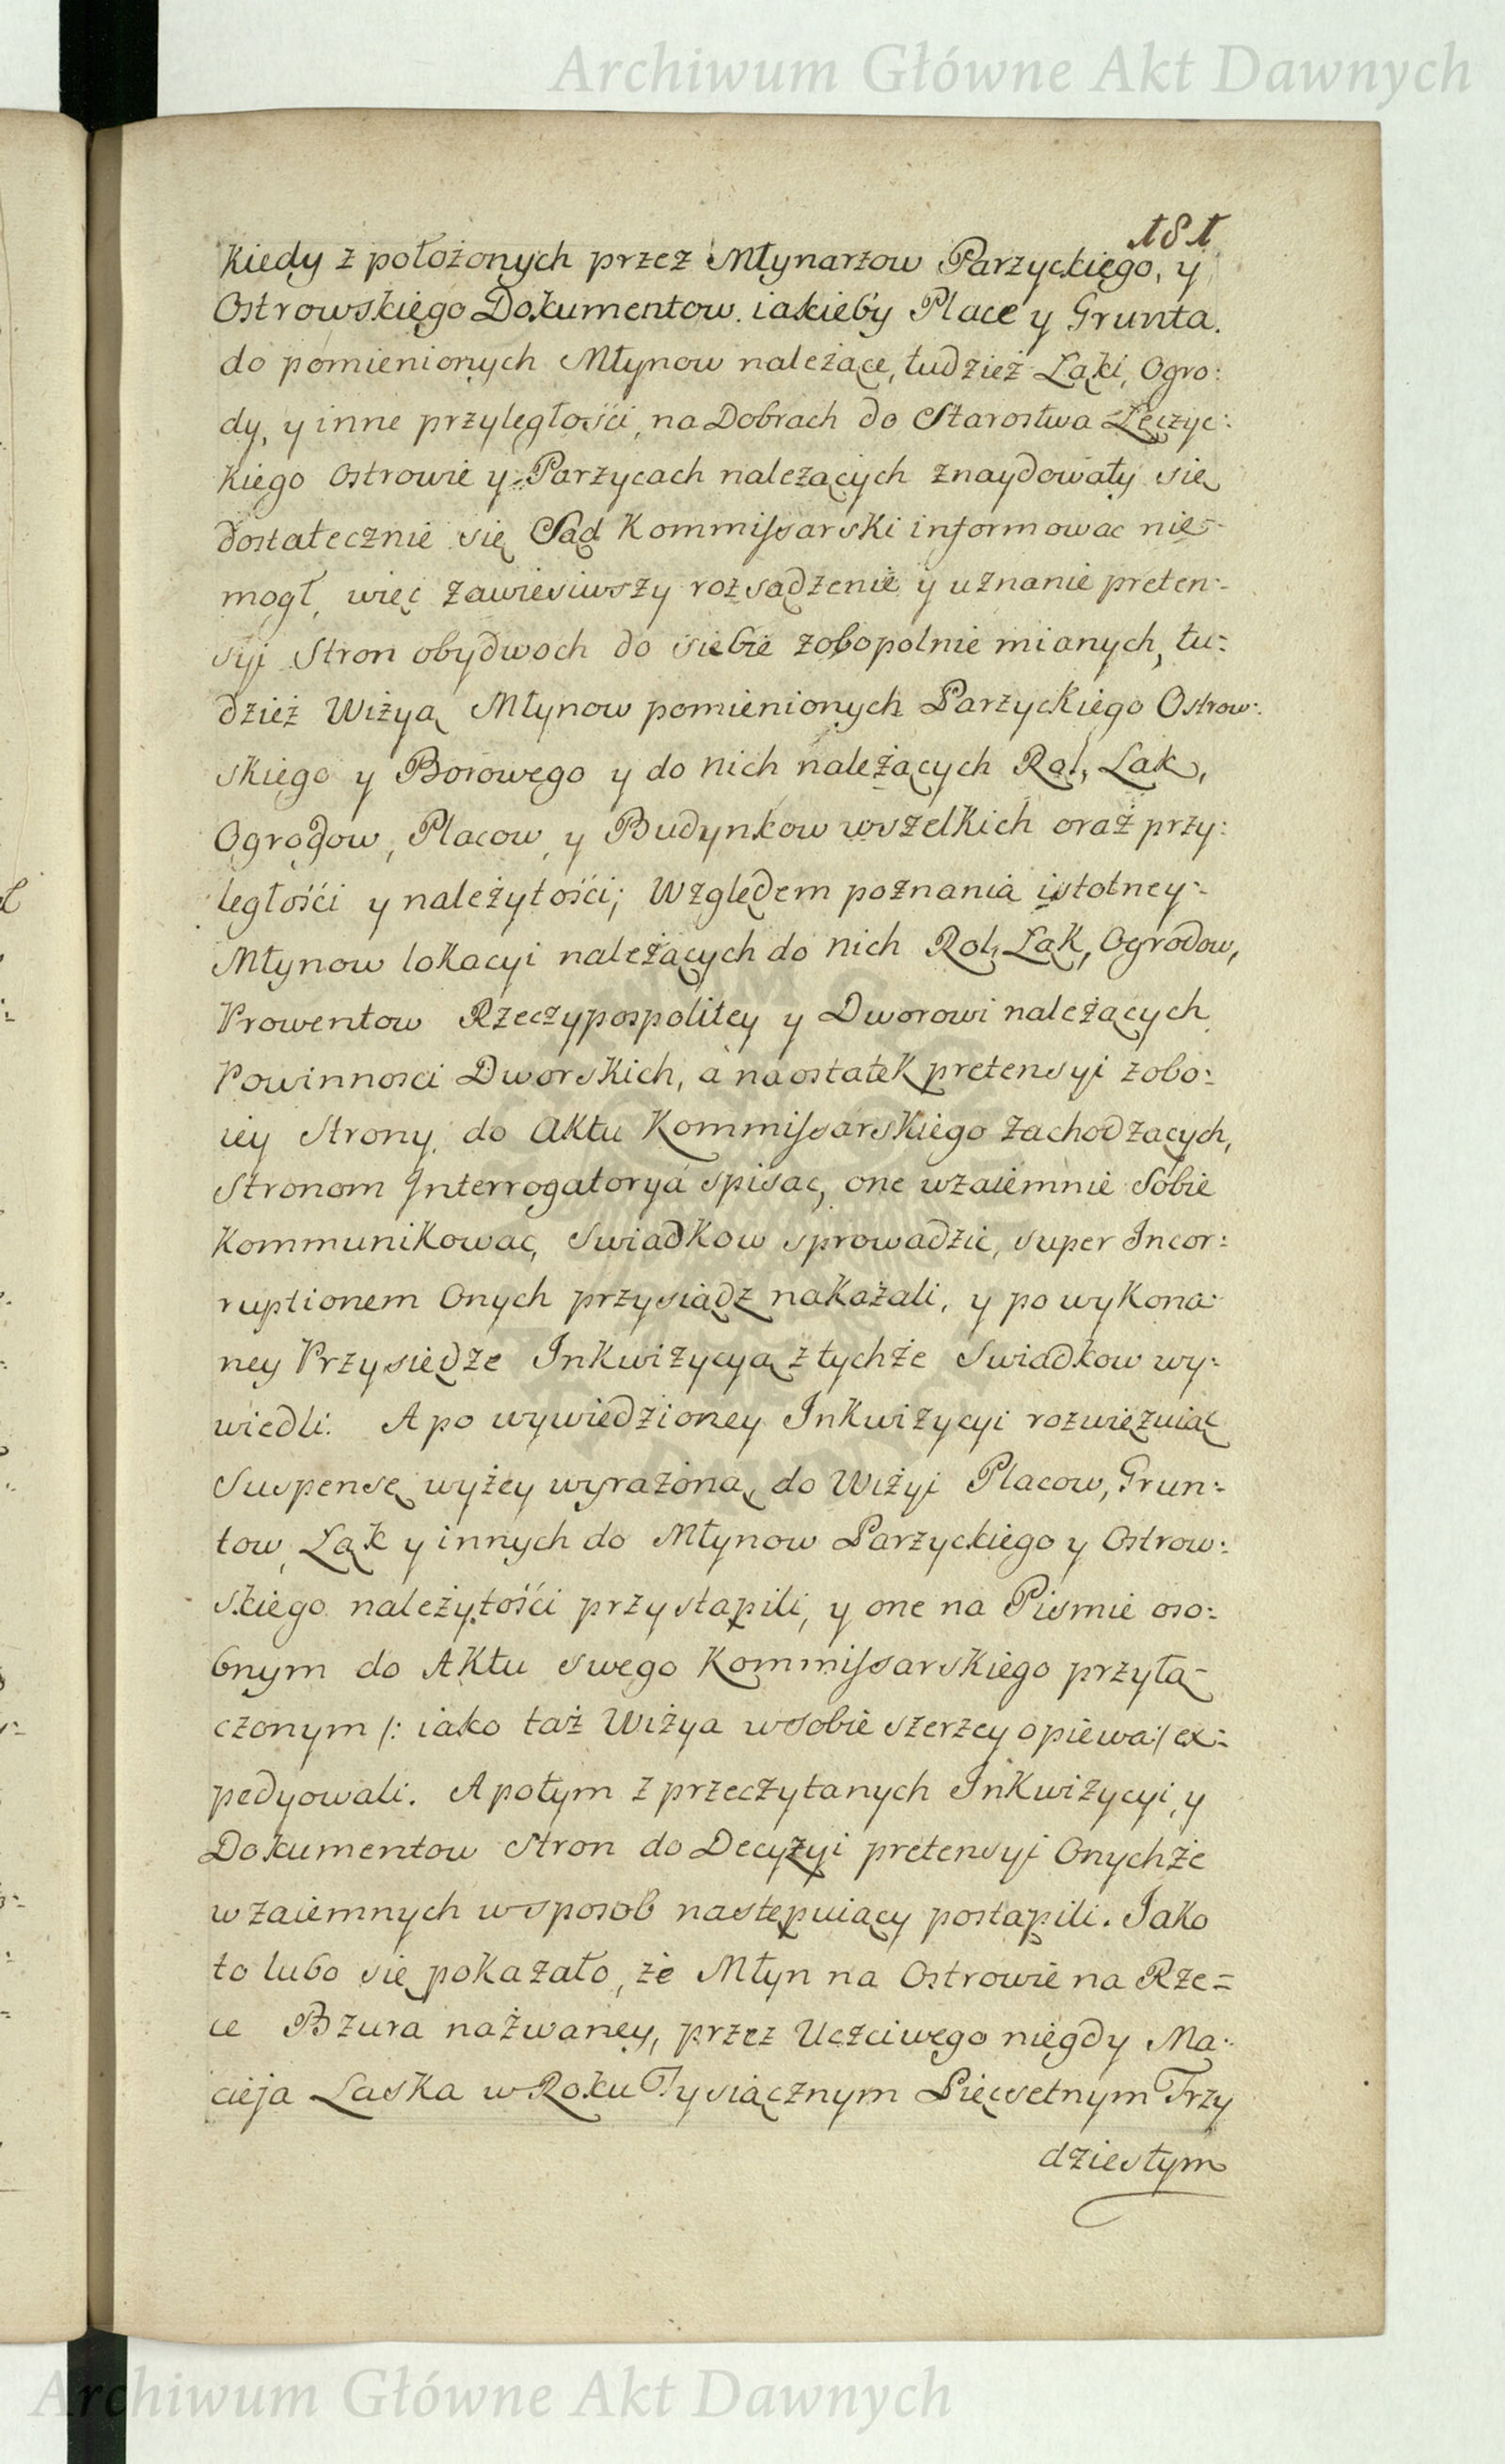 Archiwum Główne Akt Dawnych
181
Kiedy z położonych przez Młynarzow Parzyckiego, y
Ostrowskiego Dokumentow iakieby Place y Grunta
do pomienionych Młynow należące, tudzież Łąki, Ogro:
dy, y inne przyległości, na Dobrach do Starostwa Łęczyc:
kiego Ostrowie y Parzycach należących znaydowały się
dostatecznie się Sąd Kommissarski informowac nie-
mogł, więc zawiesiwszy rozsądzenie y uznanie preten:
syi Stron obydwoch do siebie zobopolnie mianych, tu:
dzież Wizyą Młynow pomienionych Parzyckiego Ostrow:
skiego y Borowego y do nich należących Rol, Łąk,
Ogrodow, Placow, y Budynkow wszelkich oraz przy:
ległości y należytości; Względem poznania istotney
Młynow lokacyi należących do nich Rol, Łąk, Ogrodow,
Prowentow Rzeczypospolitey y Dworowi należących
Powinnosci Dworskich, a naostatek pretensyi zobo:
iey Strony do Aktu Kommissarskiego zachodzących,
Stronom Interrogatorya spisac, one wzaiemnie Sobie
Kommunikowac, Swiadkow sprowadzic, super Incor:
ruptionem Onych przysiądz nakazali, y po wykona:
ney Przysiędze Inkwizycyą z tychże Swiadkow wy:
wiedli. A po wywiedzioney Inkwizycyi rozwięzuiąc
Suspensę wyżey wyrażoną do Wizyi Placow, Grun:
tow, Łąk y innych do Młynow Parzyckiego y Ostrow:
skiego należytości przystąpili, y one na Pismie oso:
bnym do Aktu swego Kommissarskiego przyłą-
czonym /: iako taż Wizya w sobie szerzey opiewa:/ ex:
pedyowali. A potym z przeczytanych Inkwizycyi, y
Dokumentow Stron do Decyzyi pretensyi Onychże
wzaiemnych w sposob następuiący postąpili. Jako
to lubo się pokazało, że Młyn na Ostrowie na Rze=
ce Bzura nazwaney, przez Uczciwego niegdy Ma:
cieja Laska w Roku Tysiącznym Pięcsetnym Trzy
dziestym
Archiwum Główne Akt Dawnych